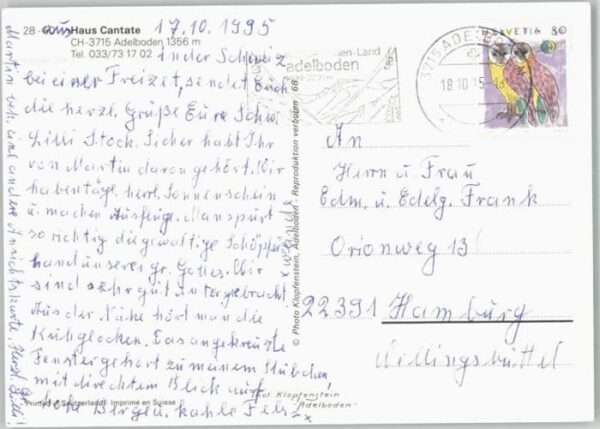 28 - aus Haus Cantate 17.10.1995
CH-3715 Adelboden 1356 m
Tel. 033/73 17 02 in der Schweiz
bei einer Freizeit, sendet Euch
die herzl. Grüße Eure Schw.
Lilli Stock. Sicher habt Ihr
von Martin davon gehört. Wir
haben tägl. herrl. Sonnenschein
u. machen Ausflüge. Man spürt
so richtig die gewaltige Schöpfer
hand unseres gr. Gottes. Wir
sind sehr gut untergebracht
Aus der Nähe hört man die
Kuhglocken. Das angekreuzte
Fenster gehört zu meinem Stübchen
mit direktem Blick auf
hohe Berge u. kahle Felsen
Martin
eine andere Ansichtskarte. Herzl. Lilli!
wende x
© Photo Klopfenstein, Adelboden - Reproduktion verboten
Printed in Switzerland Imprimé en Suisse
Klopfenstein
Adelboden
-Land
adelboden
3715 ADELBODEN
18.10.95
HELVETIA 80
An
Herrn u Frau
Edm. u. Edelg. Frank
Orionweg 13
22391 Hamburg
Wellingsbüttel